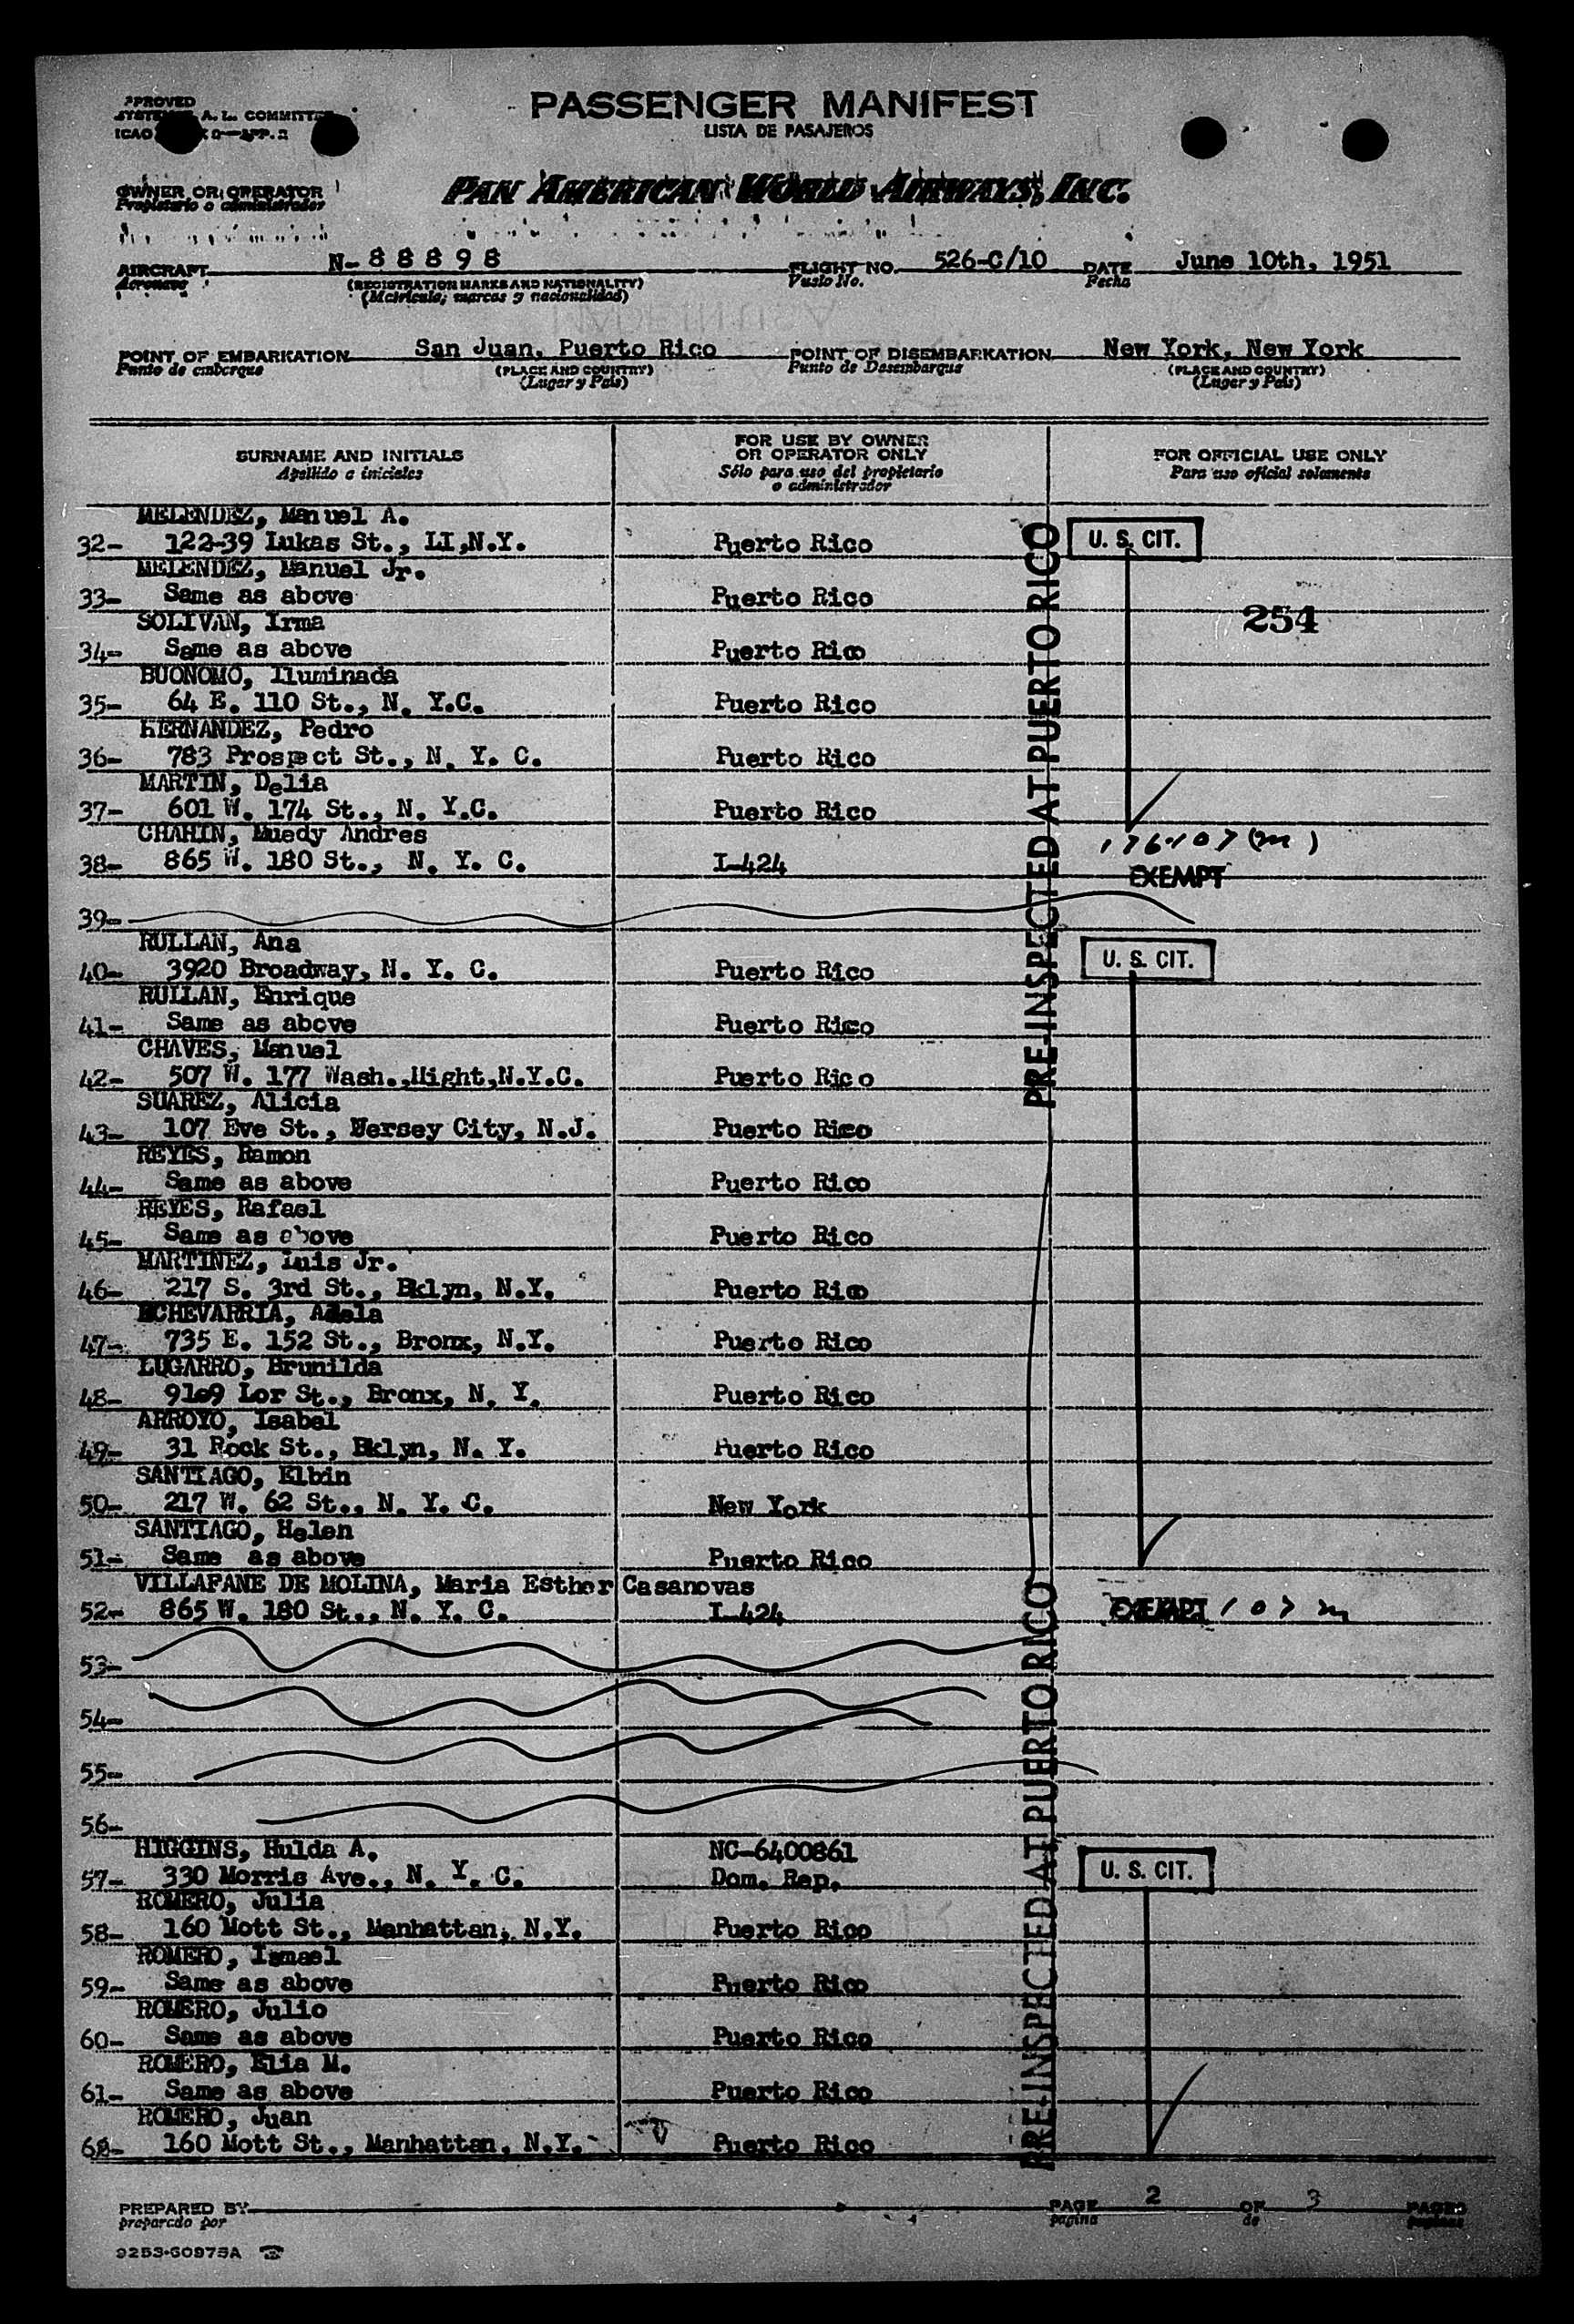 PASSENGER MANIFEST
LISTA DE PASAJEROS
APPROVED
A. L. COMMITTEE
ICAO
OWNER OR OPERATOR
Propietario o administrador
PAN AMERICAN WORLD AIRWAYS, INC.
AIRCRAFT N-88898 FLIGHT NO. 526-C/10 DATE June 10th, 1951
Aeronave (REGISTRATION MARKS AND NATIONALITY) Vuelo No. Fecha
(Matrícula, marcas y nacionalidad)
POINT OF EMBARKATION San Juan, Puerto Rico POINT OF DISEMBARKATION New York, New York
Punto de embarque (PLACE AND COUNTRY) Punto de Desembarque (PLACE AND COUNTRY)
(Lugar y País) (Lugar y País)
SURNAME AND INITIALS FOR USE BY OWNER OR OPERATOR ONLY FOR OFFICIAL USE ONLY
Apellido e iniciales Sólo para uso del propietario o administrador Para uso oficial solamente
MELENDEZ, Manuel A.
32- 122-39 Lukas St., LI,N.Y. Puerto Rico U. S. CIT.
MELENDEZ, Manuel Jr.
33- Same as above Puerto Rico
254
SOLIVAN, Irma
34- Same as above Puerto Rico
BUONOMO, Iluminada
35- 64 E. 110 St., N. Y.C. Puerto Rico
HERNANDEZ, Pedro
36- 783 Prospect St., N. Y. C. Puerto Rico
MARTIN, Delia
37- 601 W. 174 St., N. Y.C. Puerto Rico
CHAHIN, Muedy Andres
38- 865 W. 180 St., N. Y. C. I-424 EXEMPT
39-
RULLAN, Ana
40- 3920 Broadway, N. Y. C. Puerto Rico U. S. CIT.
RULLAN, Enrique
41- Same as above Puerto Rico
CHAVES, Manuel
42- 507 W. 177 Wash.,Hight,N.Y.C. Puerto Rico
SUAREZ, Alicia
43- 107 Eve St., Jersey City, N.J. Puerto Rico
REYES, Ramon
44- Same as above Puerto Rico
REYES, Rafael
45- Same as above Puerto Rico
MARTINEZ, Luis Jr.
46- 217 S. 3rd St., Bklyn, N.Y. Puerto Rico
ECHEVARRIA, Adela
47- 735 E. 152 St., Bronx, N.Y. Puerto Rico
LUGARRO, Brunilda
48- Lor St., Bronx, N. Y. Puerto Rico
ARROYO, Isabel
49- 31 Rock St., Bklyn, N. Y. Puerto Rico
SANTIAGO, Elbin
50- 217 W. 62 St., N. Y. C. New York
SANTIAGO, Helen
51- Same as above Puerto Rico
VILLAFANE DE MOLINA, Maria Esther Casanovas
52- 865 W. 180 St., N. Y. C. I-424 EXEMPT
53-
54-
55-
56-
HIGGINS, Hulda A. NC-6400861
57- 330 Morris Ave., N. Y. C. Dom. Rep. U. S. CIT.
ROMERO, Julia
58- 160 Mott St., Manhattan, N.Y. Puerto Rico
ROMERO, Ismael
59- Same as above Puerto Rico
ROMERO, Julio
60- Same as above Puerto Rico
ROMERO, Elia M.
61- Same as above Puerto Rico
ROMERO, Juan
62- 160 Mott St., Manhattan, N.Y. Puerto Rico
PRE-INSPECTED AT PUERTO RICO
PRE-INSPECTED AT PUERTO RICO
PREPARED BY PAGE 2 OF 3 PAGES
preparado por pagina de paginas
9253-60975A